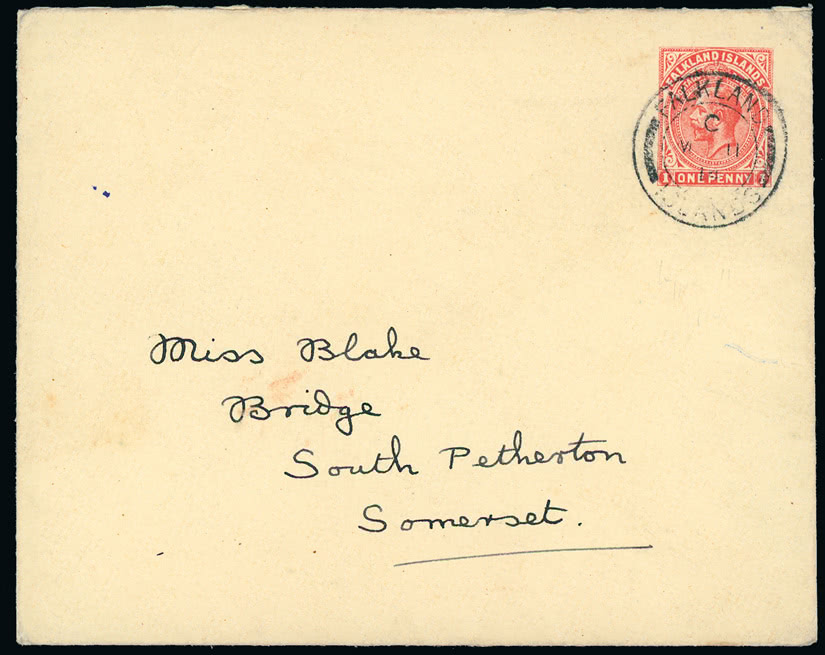 FALKLAND ISLANDS
FALKLAND
C
11
ISLANDS
1 ONE PENNY
Miss Blake
Bridge
South Petherton
Somerset.